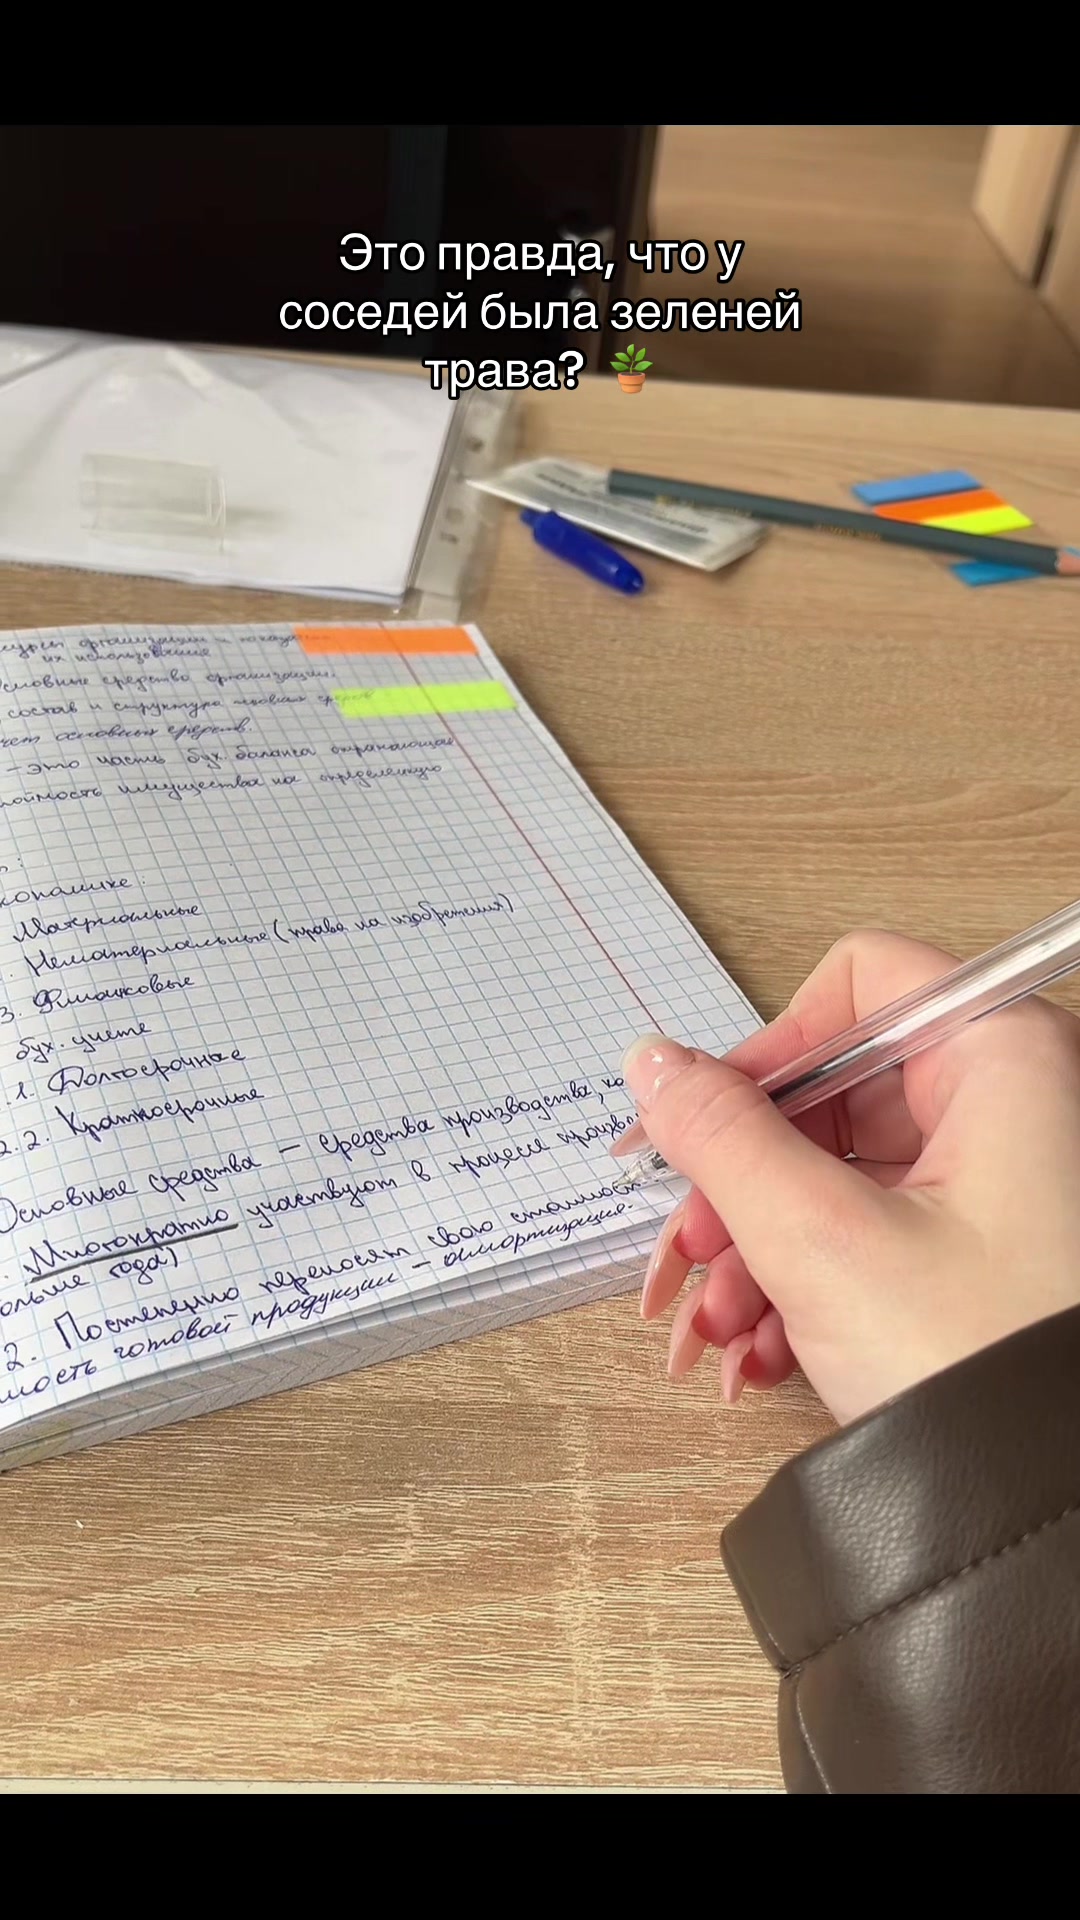 Это правда, что у
соседей была зеленей
трава? 🪴
организации и показат
их использование
основные средства организации.
состав и структура
чет основных средств.
- это часть бух. баланса отражающая
имущества на определенную
Материальные
Нематериальные (права на изобретения)
3. Финансовые
бух. учете
1. Долгосрочные
2.2. Краткосрочные
Основные средства - средства производства, ко
Многократно участвуют в процессе произво
больше года)
2. Постепенно переносят свою стоимост
готовой продукции - амортизация.